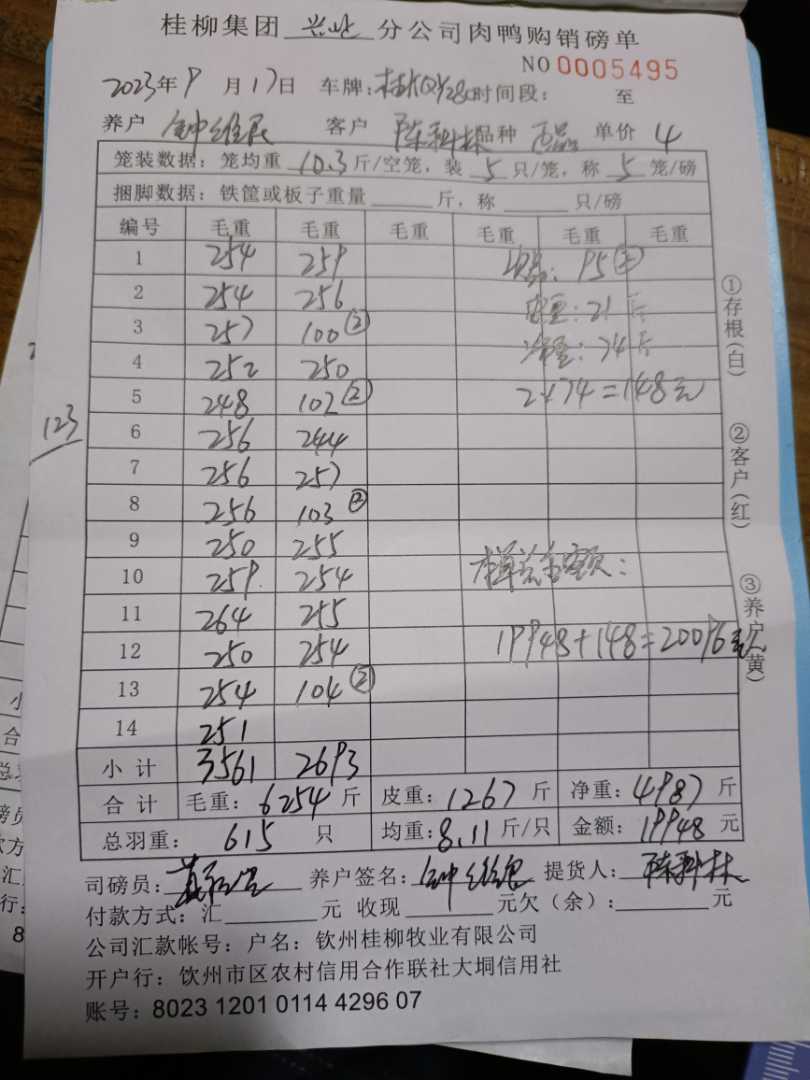 桂柳集团 兴业 分公司肉鸭购销磅单
NO 0005495
2023年9月17日 车牌: 时间段: 至
养户 钟维民 客户 陈科林 品种 单价 4
笼装数据:笼均重 10.3 斤/空笼,装 5 只/笼,称 5 笼/磅
捆脚数据:铁筐或板子重量 斤,称 只/磅
编号 毛重 毛重 毛重 毛重 毛重 毛重
1 254 259 次品:95
2 254 256 皮重:21斤
3 257 100② 净重:74斤
4 252 250 2×74=148元
5 248 102②
123
6 256 244
7 256 257
8 256 103②
9 250 255
10 259 254 本单总金额:
11 264 255
12 250 254 19948+148=20096元
13 254 104②
14 251
小计 3561 2693
合计 毛重:6254斤 皮重:1267斤 净重:4987斤
总羽重:615只 均重:8.11斤/只 金额:19948元
司磅员: 养户签名:钟维民 提货人:陈科林
付款方式:汇 元 收现 元欠(余): 元
公司汇款帐号:户名:钦州桂柳牧业有限公司
开户行:饮州市区农村信用合作联社大垌信用社
账号:8023 1201 0114 4296 07
①存根(白)
②客户(红)
③养户(黄)